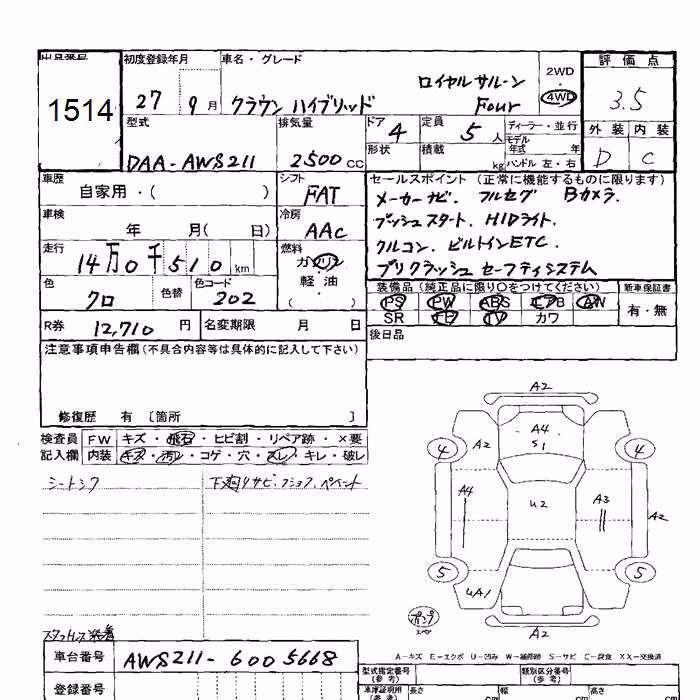 出品番号 初度登録年月 車名・グレード 評価点
1514 27 9月 クラウン ハイブリッド ロイヤルサルーン Four 2WD・4WD 3.5
型式 排気量 ドア 定員 ディーラー・並行 外装 内装
DAA-AWS211 2500CC 4 5人 モデル年式 年 D C
形状 積載 kg ハンドル 左・右
車歴 シフト セールスポイント (正常に機能するものに限ります)
自家用・( ) FAT メーカーナビ. フルセグ Bカメラ.
車検 冷房 プッシュスタート. HIDライト.
年 月( 日) AAC クルコン. ビルトインETC.
走行 燃料 プリクラッシュ セーフティシステム
14万0千510km ガソリン・軽油・( )
色 色替 色コード 装備品 (純正品に限り○をつけてください) 新車保証書
クロ 202 PS PW ABS エアB AW 有・無
SR TV カワ
R券 12,710円 名変期限 月 日 後日品
注意事項申告欄(不具合内容等は具体的に記入して下さい)
修復歴 有 〔箇所 〕
検査員 FW キズ・飛石・ヒビ割・リペア跡・×要
記入欄 内装 キズ・汚レ・コゲ・穴・スレ・キレ・破レ
シートシワ 下廻りサビ.
A2
A4
S1
A2
4 4
A4 U2 A3 A2
5 5
UA1
A2
スタッドレス装着
A-キズ E-エクボ U-凹み W-補修跡 S-サビ C-腐食 XX-交換済
車台番号 AWS211-6005668
型式指定番号(参考) 類別区分番号(参考)
登録番号 車庫証明用(参考) 長さ cm 幅 cm 高さ cm